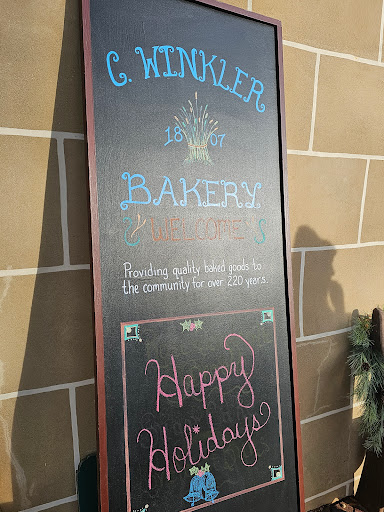 C. WINKLER
1807
BAKERY
WELCOMES
Providing quality baked goods to
the community for over 220 years.
Happy
Holidays